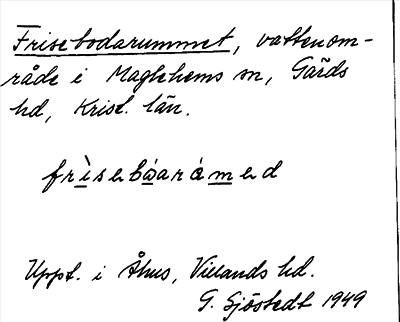 Frisebodarummet, vattenom-
råde i Maglehems sn, Gärds
hd, Krist. län.
frìsebòarámed
Uppt. i Åhus, Villands hd.
G. Sjöstedt 1949